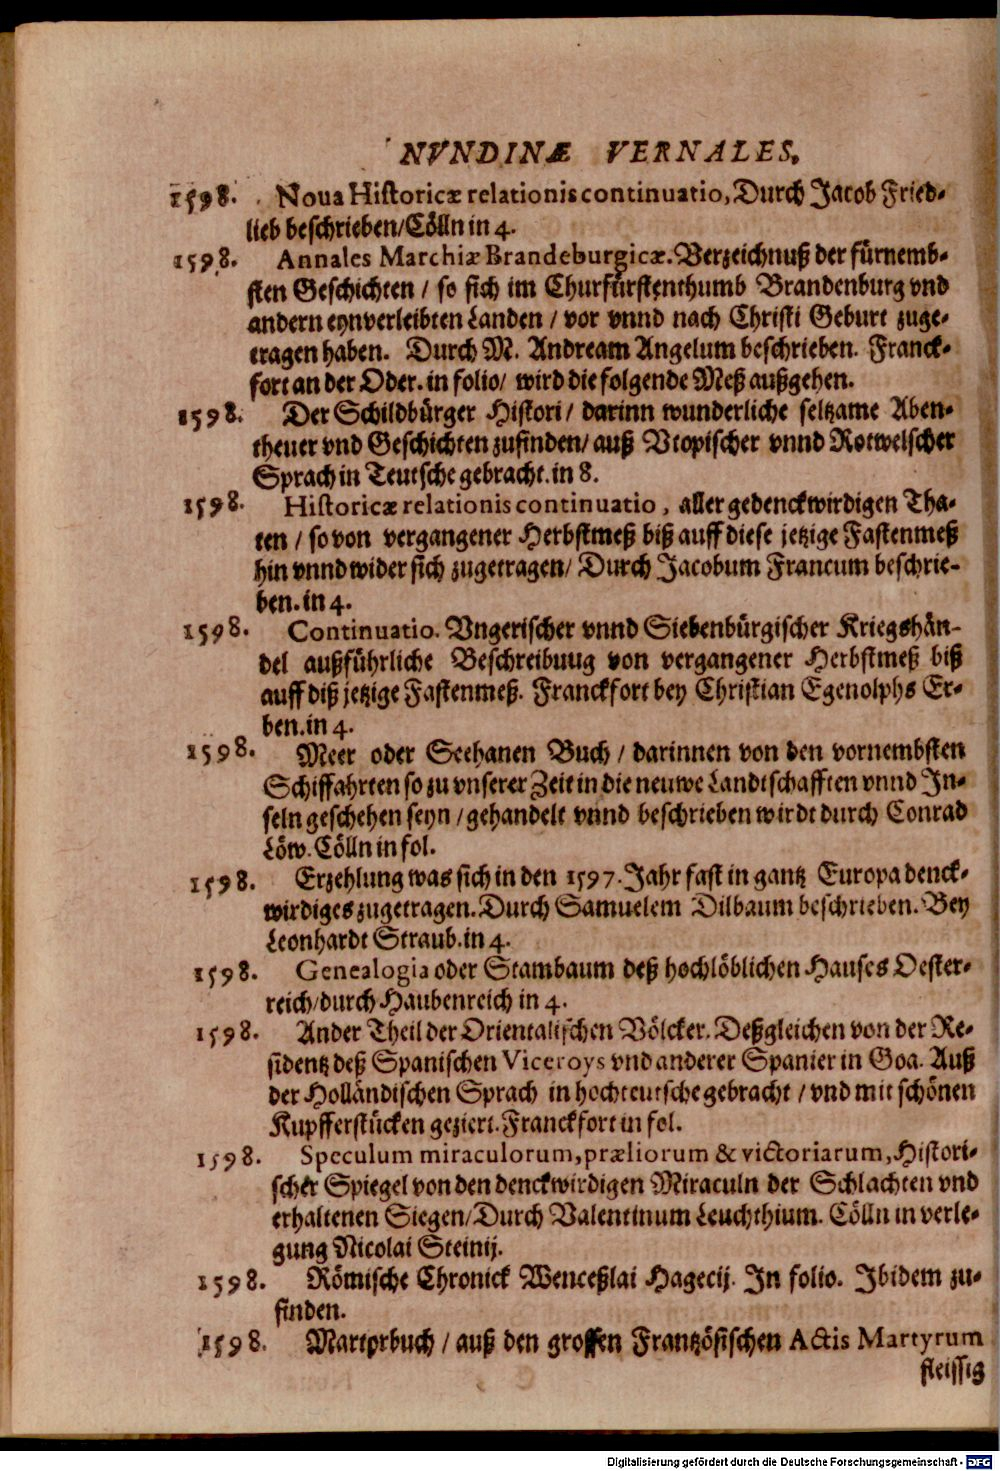 NVNDINÆ VERNALES.
1598. Noua Historicæ relationis continuatio, Durch Jacob Fried-
lieb beschrieben/Cölln in 4.
1598. Annales Marchiæ Brandeburgicæ. Verzeichnuß der fürnemb-
sten Geschichten / so sich im Churfürstenthumb Brandenburg vnd
andern eynverleibten Landen / vor vnnd nach Christi Geburt zuge-
tragen haben. Durch M. Andream Angelum beschrieben. Franck-
fort an der Oder. in folio/ wird die folgende Meß außgehen.
1598. Der Schildbürger Histori/ darinn wunderliche seltzame Aben-
theuer vnd Geschichten zufinden/ auß Vtopischer vnnd Rotwelscher
Sprach in Teutsche gebracht. in 8.
1598. Historicæ relationis continuatio, aller gedenckwirdigen Tha-
ten / so von vergangener Herbstmeß biß auff diese jetzige Fastenmeß
hin vnnd wider sich zugetragen/ Durch Jacobum Francum beschrie-
ben. in 4.
1598. Continuatio. Vngerischer vnnd Siebenbürgischer Kriegshän-
del außführliche Beschreibuug von vergangener Herbstmeß biß
auff diß jetzige Fastenmeß. Franckfort bey Christian Egenolphs Er-
ben. in 4.
1598. Meer oder Seehanen Buch / darinnen von den vornembsten
Schiffahrten so zu vnserer Zeit in die neuwe Landtschafften vnnd In-
seln geschehen seyn / gehandelt vnnd beschrieben wirdt durch Conrad
Löw. Cölln in fol.
1598. Erzehlung was sich in den 1597. Jahr fast in gantz Europa denck-
wirdiges zugetragen. Durch Samuelem Dilbaum beschrieben. Bey
Leonhardt Straub. in 4.
1598. Genealogia oder Stambaum deß hochlöblichen Hauses Oester-
reich/durch Haubenreich in 4.
1598. Ander Theil der Orientalischen Völcker. Deßgleichen von der Re-
sidentz deß Spanischen Viceroys vnd anderer Spanier in Goa. Auß
der Holländischen Sprach in hochteutsche gebracht / vnd mit schönen
Kupfferstücken geziert. Franckfort in fol.
1598. Speculum miraculorum, præliorum & victoriarum, Histori-
scher Spiegel von den denckwirdigen Miraculn der Schlachten vnd
erhaltenen Siegen/Durch Valentinum Leuchthium. Cölln in verle-
gung Nicolai Steinij.
1598. Römische Chronick Wenceßlai Hagecij. In folio. Ibidem zu-
finden.
1598. Martyrbuch / auß den grossen Frantzösischen Actis Martyrum
fleissig
Digitalisierung gefördert durch die Deutsche Forschungsgemeinschaft - DFG